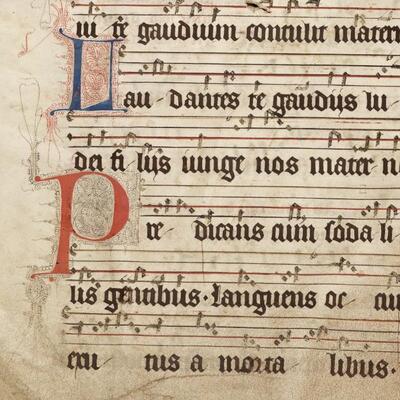 iu te gaudium contulit matern
Lau dantes te gaudiis iu
dei fi liis iunge nos mater n
Pre dicans cum soda li
lis gentibus. languens oc cu
exu tus a morta libus.